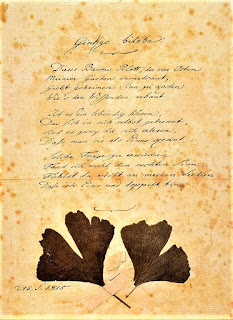 Ginkgo biloba
Dieses Baums Blatt, der von Osten
Meinem Garten anvertraut,
Giebt geheimen Sinn zu kosten
Wie's den Wissenden erbaut
Ist es Ein lebendig Wesen
Das sich in sich selbst getrennt,
Sind es zwey die sich erlesen,
Dass man sie als Eines kennt
Solche Frage zu erwiedern
Fand ich wohl den rechten Sinn
Fühlst du nicht an meinen Liedern
Dass ich Eins und doppelt bin
d. 15. S. 1815